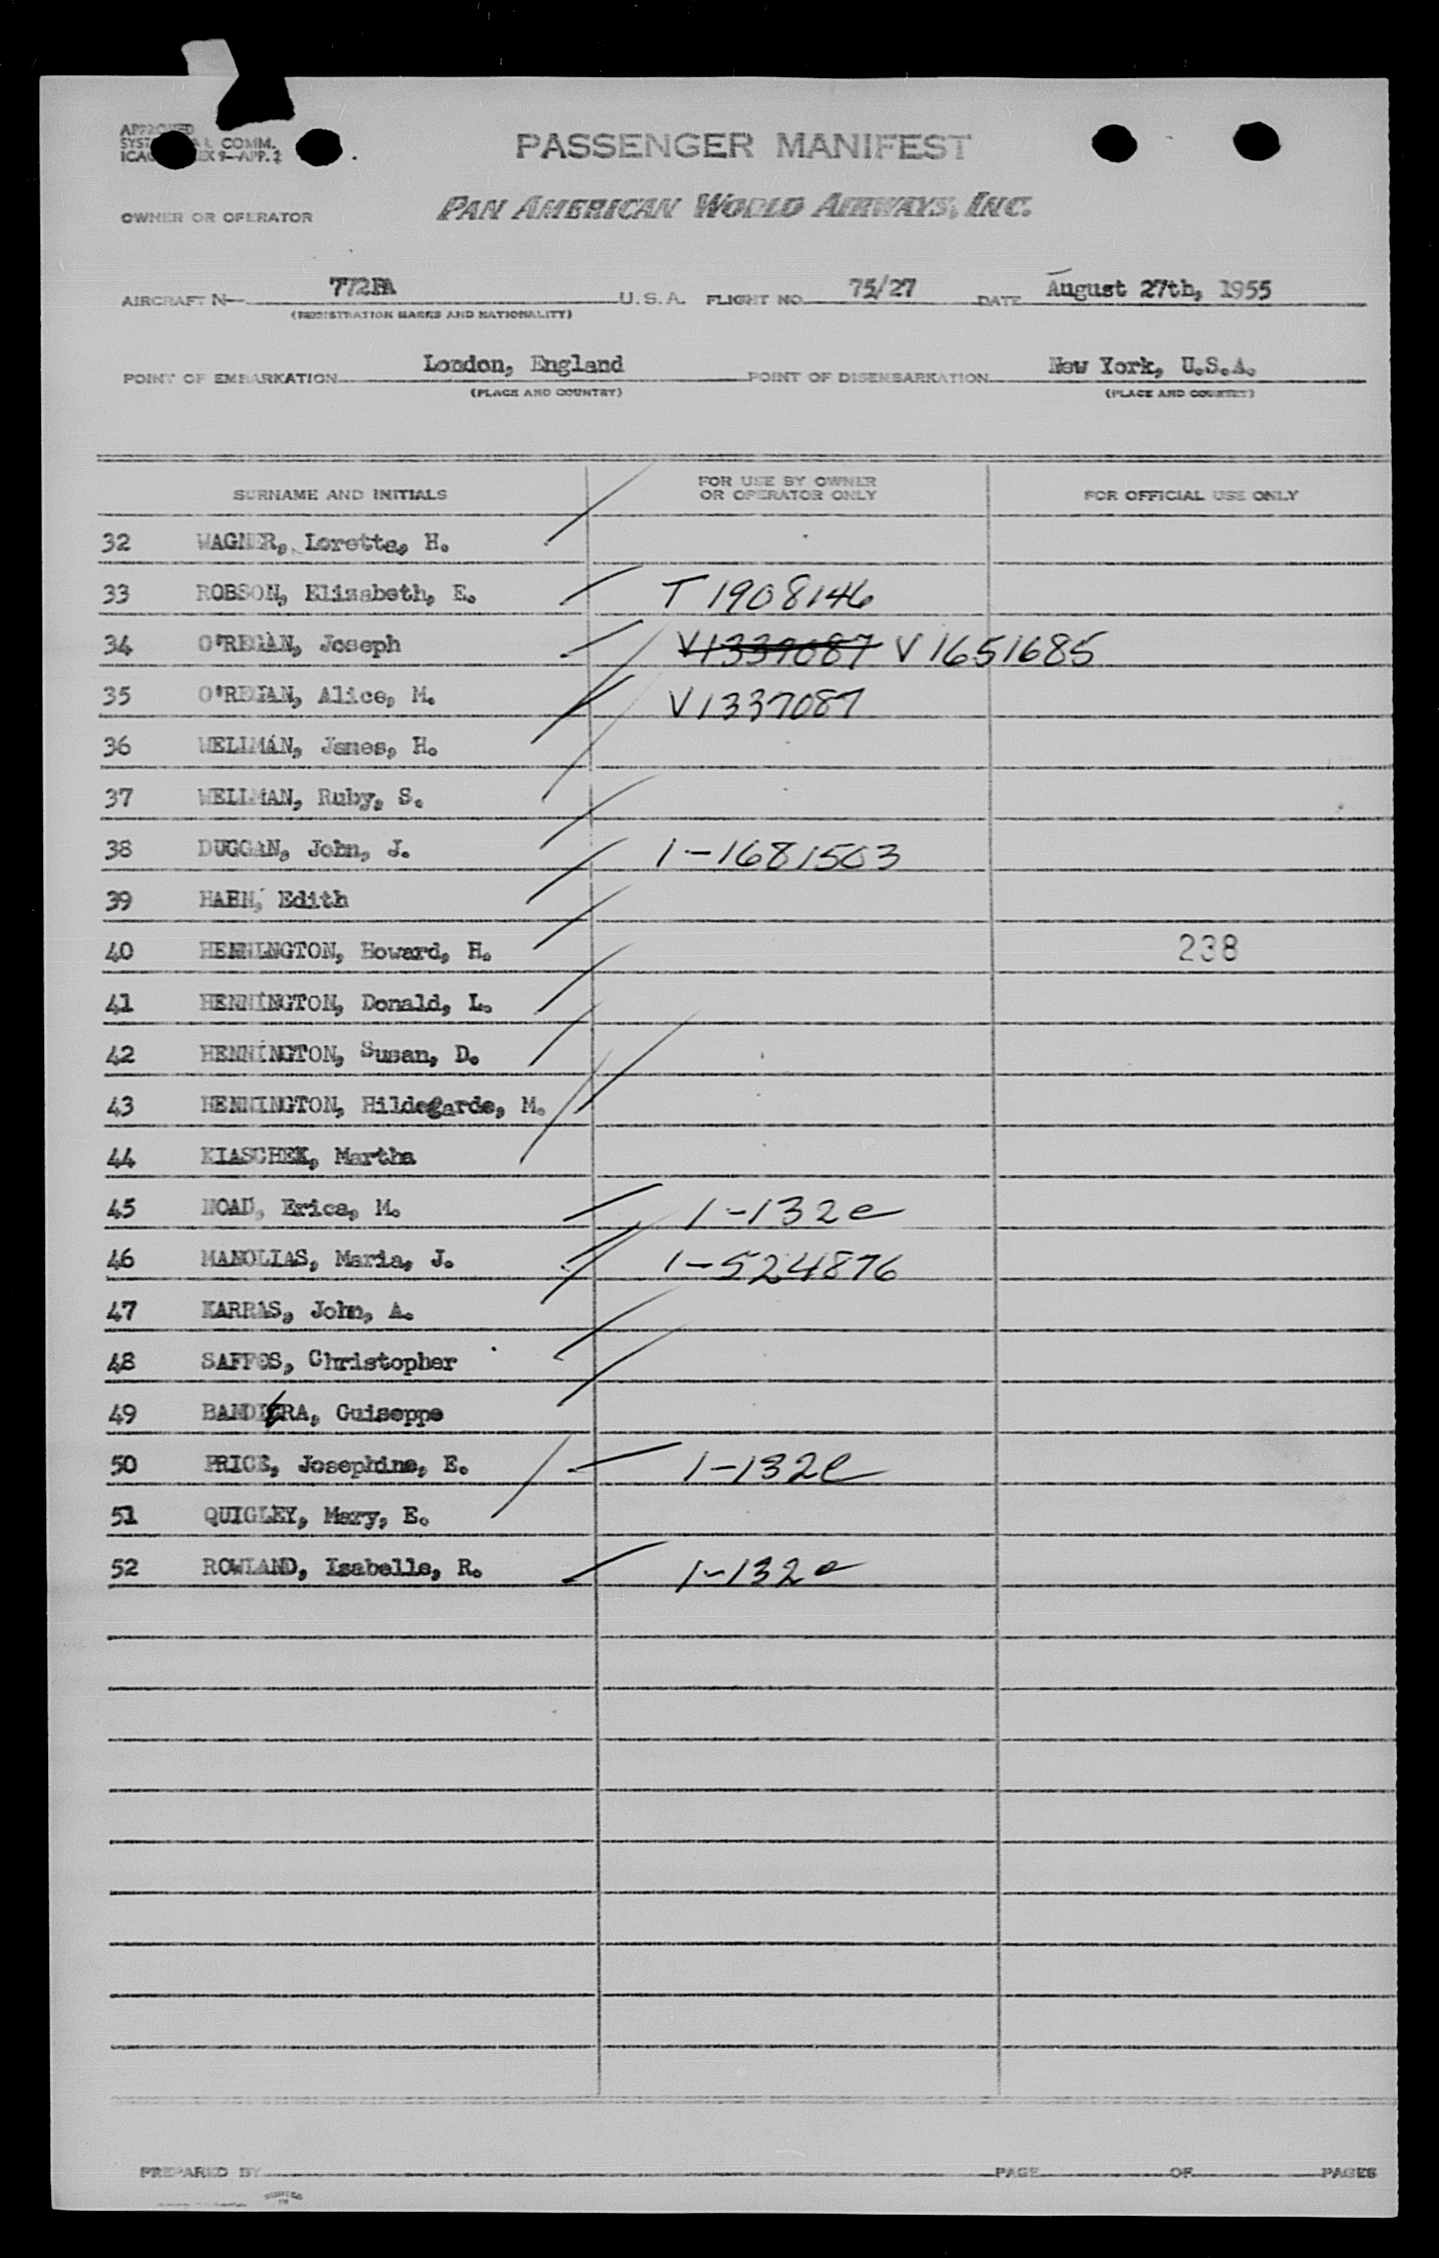 APPROVED
SYST AL COMM.
ICAO EX 9-APP. 2
PASSENGER MANIFEST
OWNER OR OPERATOR PAN AMERICAN WORLD AIRWAYS, INC.
AIRCRAFT N- 772PA U.S.A. FLIGHT NO. 75/27 DATE August 27th, 1955
(REGISTRATION MARKS AND NATIONALITY)
POINT OF EMBARKATION London, England POINT OF DISEMBARKATION New York, U.S.A.
(PLACE AND COUNTRY) (PLACE AND COUNTRY)
SURNAME AND INITIALS FOR USE BY OWNER OR OPERATOR ONLY FOR OFFICIAL USE ONLY
32 WAGNER, Lorette, H.
33 ROBSON, Elizabeth, E. T 1908146
34 O'REGAN, Joseph V1337087 V1651685
35 O'REGAN, Alice, M. V1337087
36 WELLMAN, James, H.
37 WELLMAN, Ruby, S.
38 DUGGAN, John, J. 1-1681503
39 HAHN, Edith
40 HENNINGTON, Howard, H. 238
41 HENNINGTON, Donald, L.
42 HENNINGTON, Susan, D.
43 HENNINGTON, Hildegarde, M.
44 KIASCHEK, Martha
45 NOAD, Erica, M. 1-132e
46 MANOLIAS, Maria, J. 1-524876
47 KARRAS, John, A.
48 SAFFOS, Christopher
49 BANDIERA, Guiseppe
50 PRICE, Josephine, E. 1-132e
51 QUIGLEY, Mary, E.
52 ROWLAND, Isabelle, R. 1-132e
PREPARED BY PAGE OF PAGES